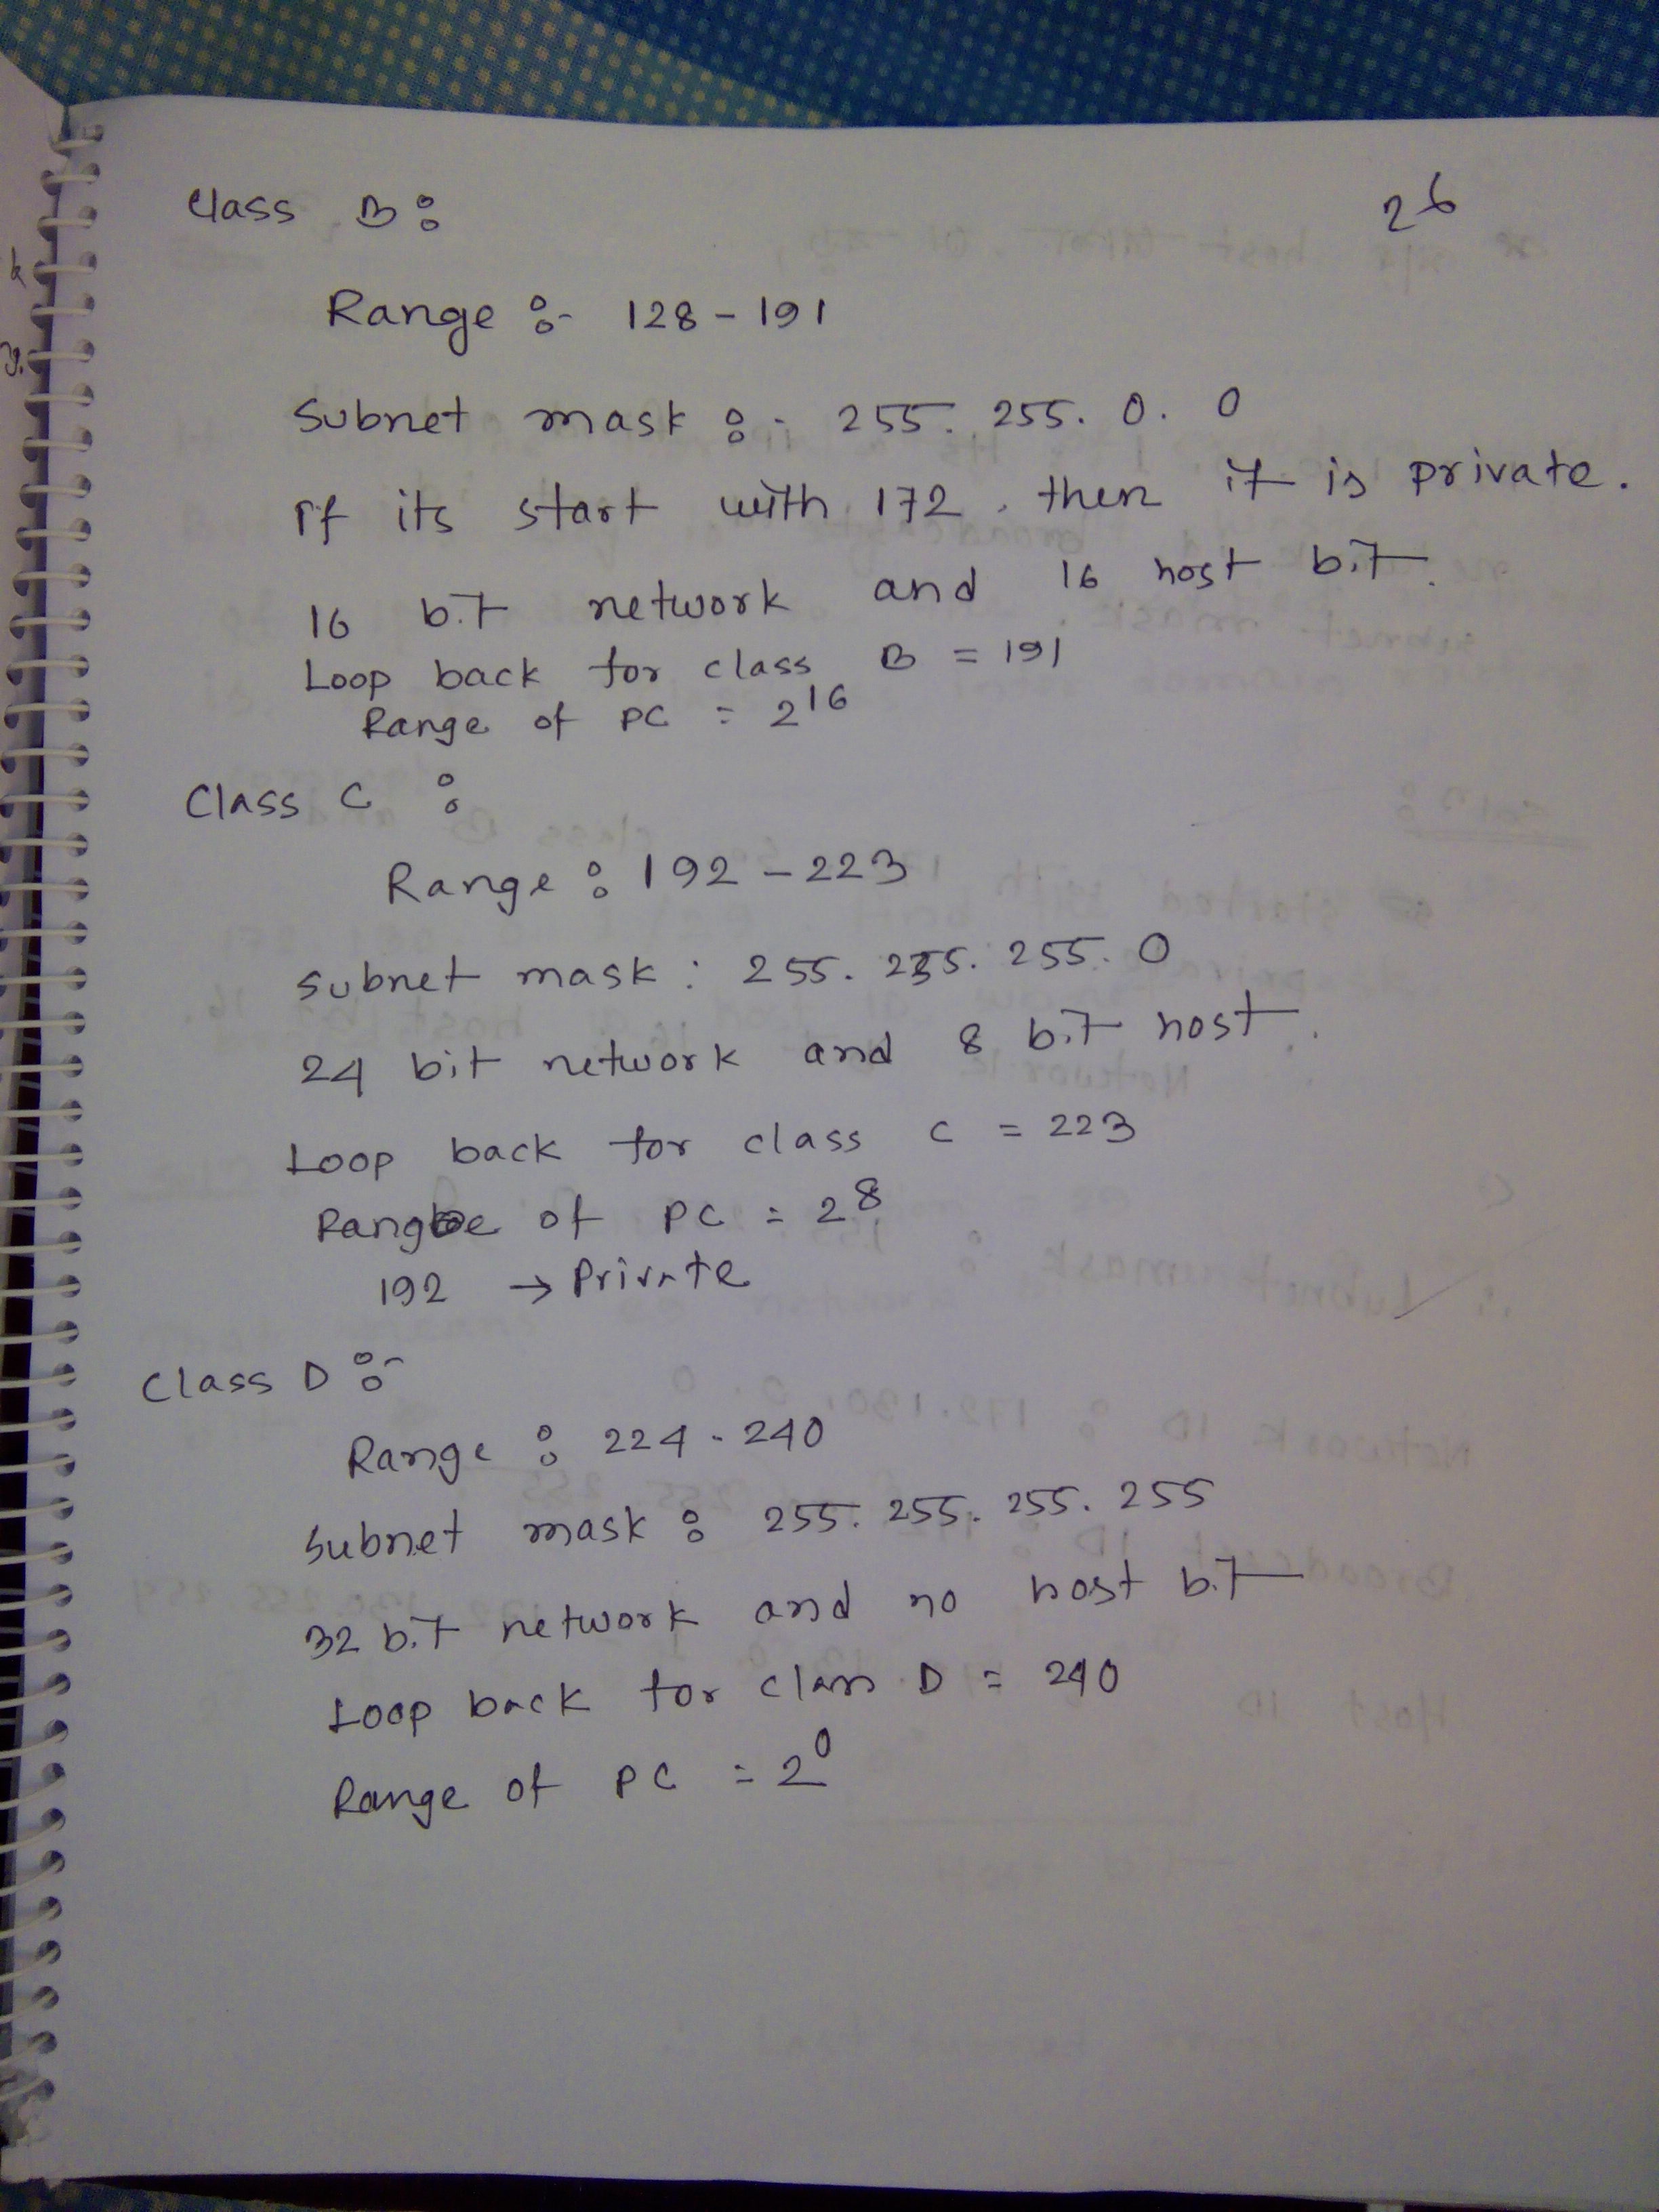 26
Class B :
Range :- 128 - 191
Subnet mask :- 255. 255. 0. 0
If its start with 172, then it is private.
16 bit network and 16 host bit.
Loop back for class B = 191
Range of PC = 2^16
Class C :
Range : 192 - 223
Subnet mask : 255. 255. 255. 0
24 bit network and 8 bit host.
Loop back for class C = 223
Range of PC = 2^8
192 → Private
Class D :-
Range : 224 - 240
Subnet mask : 255. 255. 255. 255
32 bit network and no host bit
Loop back for class D = 240
Range of PC = 2^0